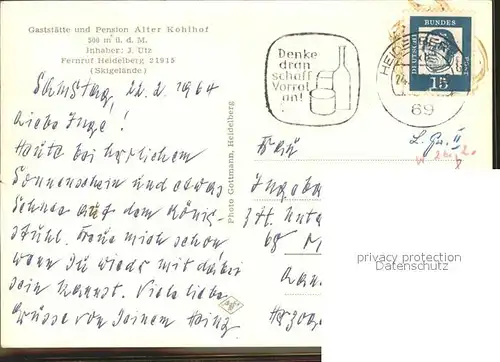 Gaststätte und Pension Alter Kohlhof
500 m ü. d. M.
Inhaber: J. Utz
Fernruf Heidelberg 21915
(Skigelände)
Samstag, 22.2.1964
Liebe Inge!
Heute bei herrlichem
Sonnenschein und etwas
Schnee auf dem König-
stuhl. Freue mich schon
wenn Du wieder mit dabei
sein kannst. Viele liebe
Grüsse von Deinem Heinz
Photo Gottmann, Heidelberg
Denke
dran
schaff
Vorrat
an!
DEUTSCHE
BUNDES
POST
15
69
Frau
Ingebo
z.Zt.
68
privacy protection
Datenschutz